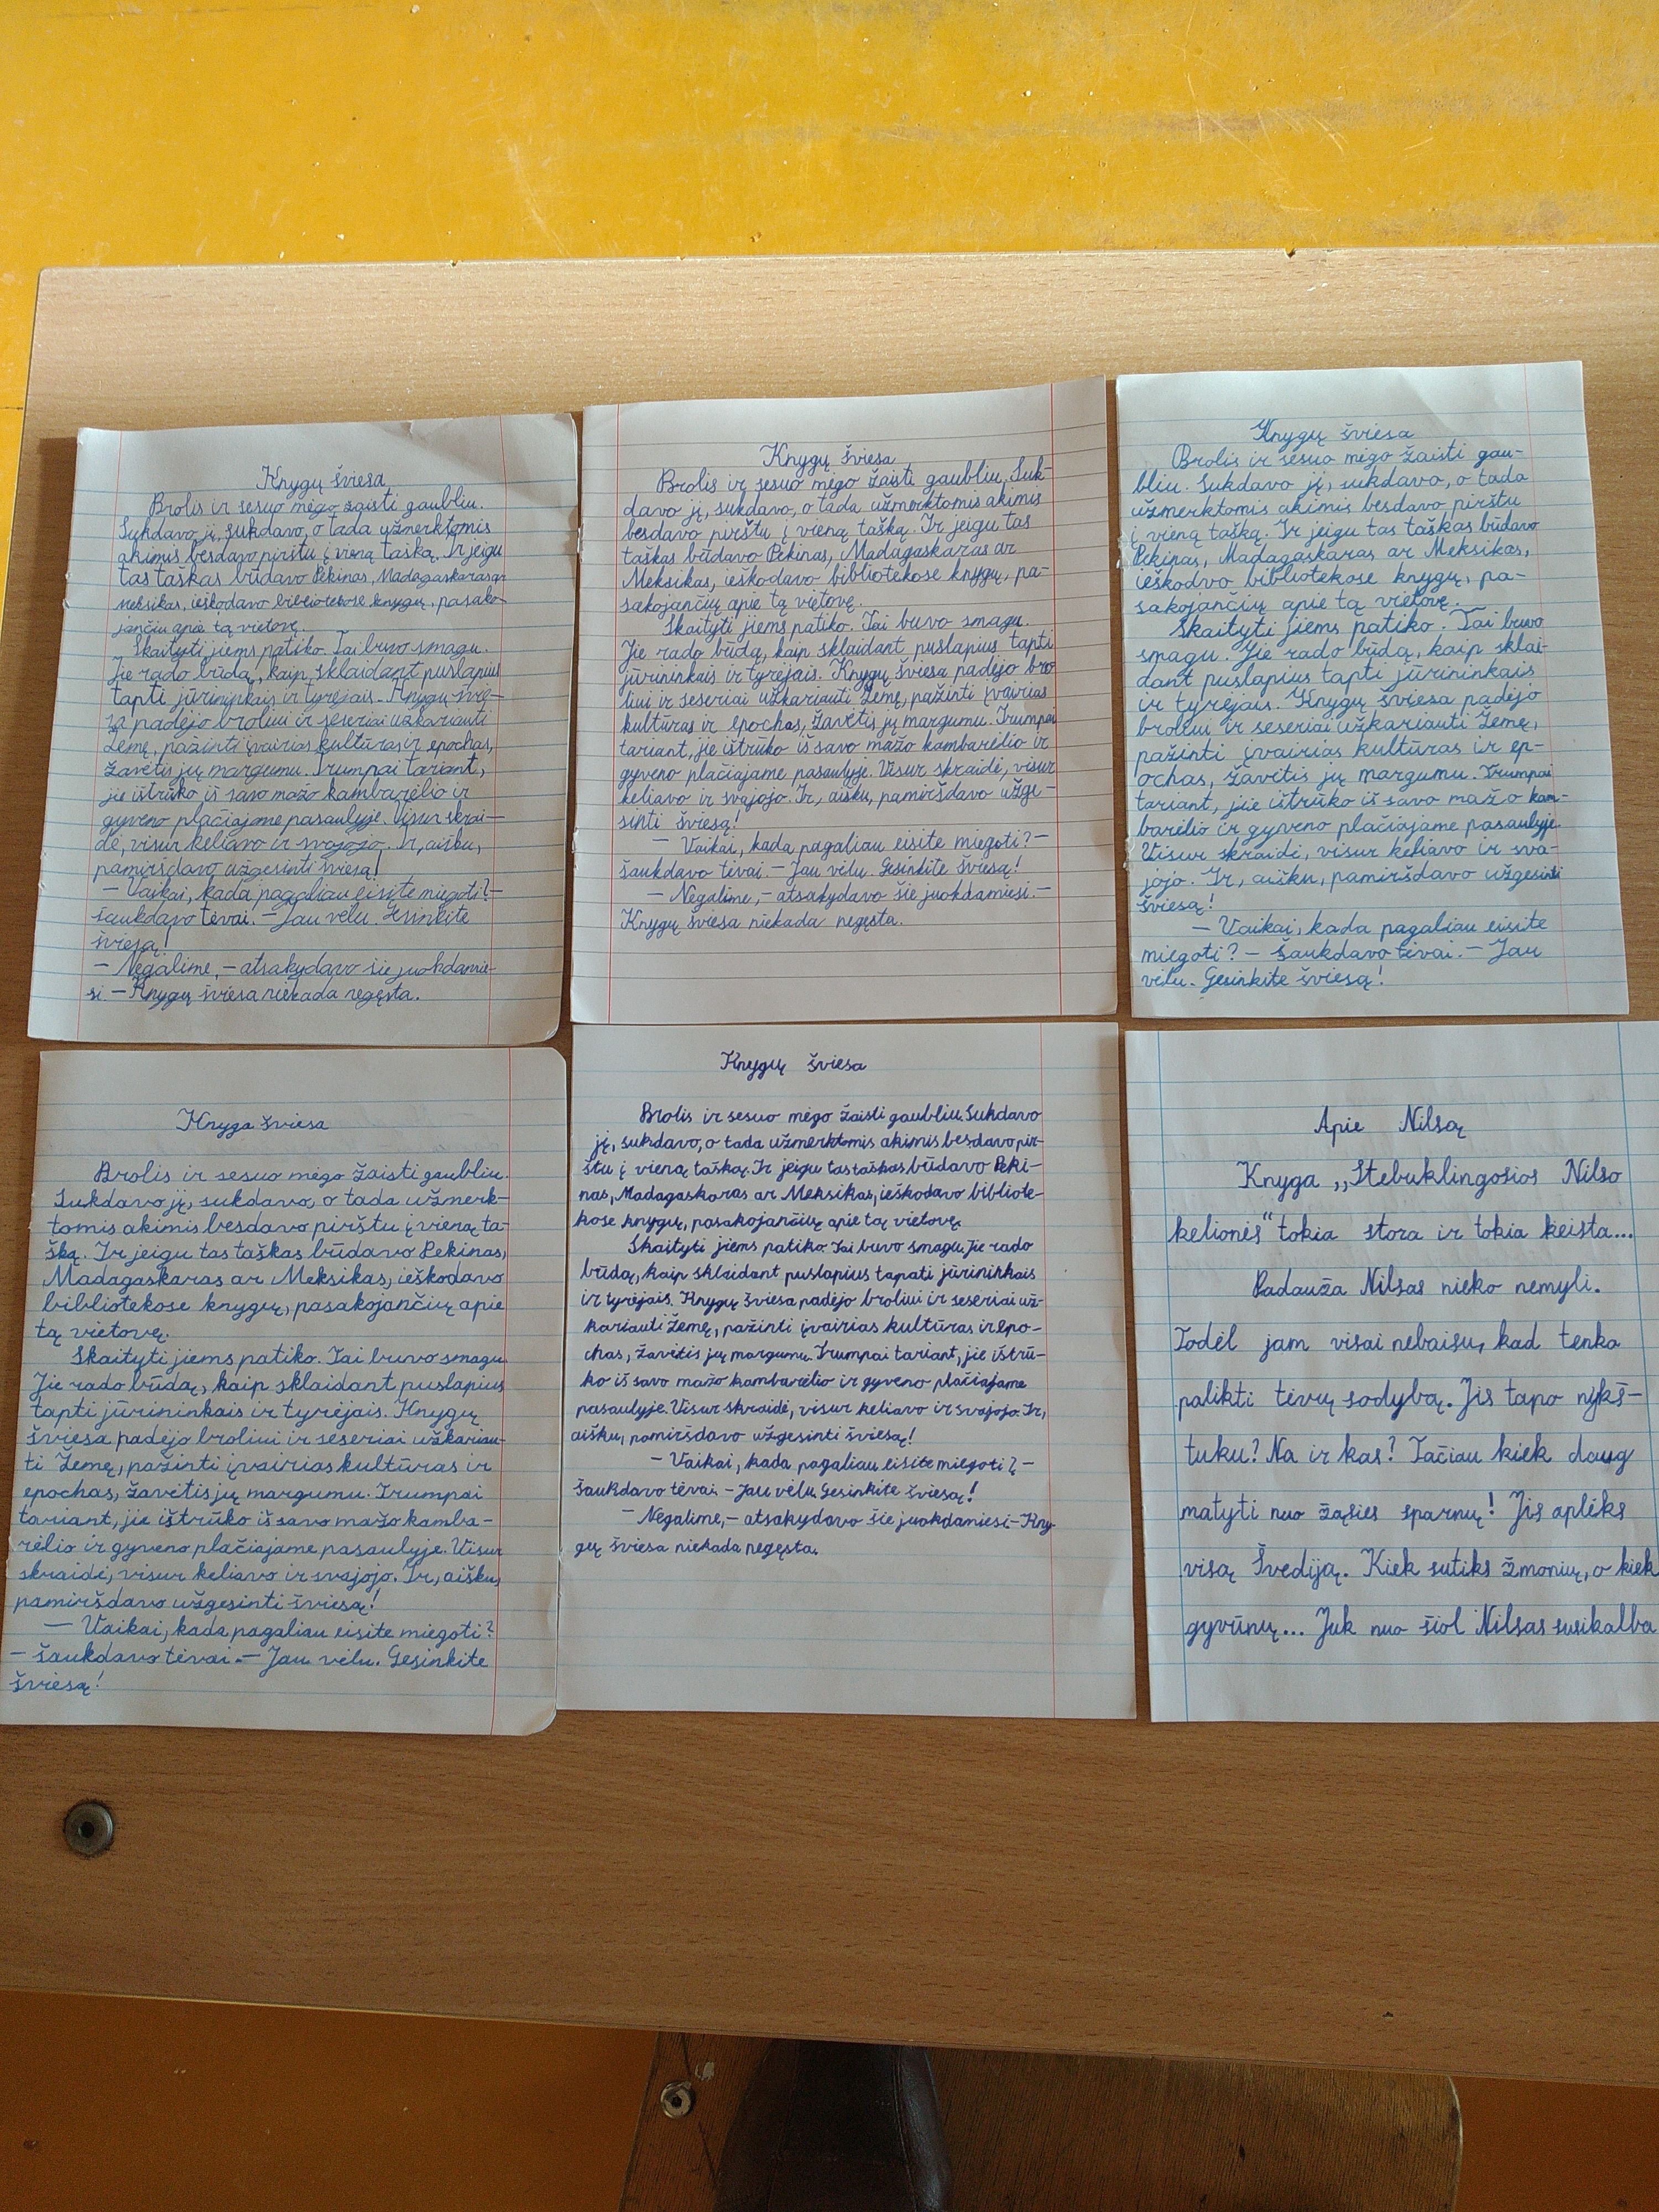 Knygų šviesa
Brolis ir sesuo mėgo žaisti gaubliu.
Sukdavo jį, sukdavo, o tada užmerktomis
akimis besdavo pirštu į vieną tašką. Ir jeigu
tas taškas būdavo Pekinas, Madagaskaras ar
Meksikas, ieškodavo bibliotekose knygų, pasako-
jančių apie tą vietovę.
Skaityti jiems patiko. Tai buvo smagu.
Jie rado būdą, kaip sklaidant puslapius
tapti jūrininkais ir tyrėjais. Knygų švie-
sa padėjo broliui ir seseriai užkariauti
Žemę, pažinti įvairias kultūras ir epochas,
žavėtis jų margumu. Trumpai tariant,
jie ištrūko iš savo mažo kambarėlio ir
gyveno plačiajame pasaulyje. Visur skrai-
dė, visur keliavo ir svajojo. Ir, aišku,
pamiršdavo užgesinti šviesą!
– Vaikai, kada pagaliau eisite miegoti? –
šaukdavo tėvai. – Jau vėlu. Gesinkite
šviesą!
– Negalime, – atsakydavo šie juokdamie-
si – Knygų šviesa niekada negęsta.
Knygų šviesa
Brolis ir sesuo mėgo žaisti gaubliu. Suk-
davo jį, sukdavo, o tada užmerktomis akimis
besdavo pirštu į vieną tašką. Ir jeigu tas
taškas būdavo Pekinas, Madagaskaras ar
Meksikas, ieškodavo bibliotekose knygų, pa-
sakojančių apie tą vietovę.
Skaityti jiems patiko. Tai buvo smagu.
Jie rado būdą, kaip sklaidant puslapius tapti
jūrininkais ir tyrėjais. Knygų šviesa padėjo bro
liui ir seseriai užkariauti Žemę, pažinti įvairias
kultūras ir epochas, žavėtis jų margumu. Trumpai
tariant, jie ištrūko iš savo mažo kambarėlio ir
gyveno plačiajame pasaulyje. Visur skraidė, visur
keliavo ir svajojo. Ir, aišku, pamiršdavo užge-
sinti šviesą!
– Vaikai, kada pagaliau eisite miegoti? –
šaukdavo tėvai. – Jau vėlu. Gesinkite šviesą!
– Negalime, – atsakydavo šie juokdamiesi. –
Knygų šviesa niekada negęsta.
Knygų šviesa
Brolis ir sesuo mėgo žaisti gau-
bliu. Sukdavo jį, sukdavo, o tada
užmerktomis akimis besdavo pirštu
į vieną tašką. Ir jeigu tas taškas būdavo
Pekinas, Madagaskaras ar Meksikas,
ieškodvo bibliotekose knygų, pa-
sakojančių apie tą vietovę.
Skaityti jiems patiko. Tai buvo
smagu. Jie rado būdą, kaip sklai-
dant puslapius tapti jūrininkais
ir tyrėjais. Knygų šviesa padėjo
broliui ir seseriai užkariauti Žemę,
pažinti įvairias kultūras ir ep-
ochas, žavėtis jų margumu. Trumpai
tariant, jie ištrūko iš savo mažo kam-
barėlio ir gyveno plačiajame pasaulyje.
Visur skraidė, visur keliavo ir sva-
jojo. Ir, aišku, pamiršdavo užgesinti
šviesą!
– Vaikai, kada pagaliau eisite
miegoti? – šaukdavo tėvai. – Jau
vėlu. Gesinkite šviesą!
Knyga šviesa
Brolis ir sesuo mėgo žaisti gaubliu.
Sukdavo jį, sukdavo, o tada užmerk-
tomis akimis besdavo pirštu į vieną ta-
šką. Ir jeigu tas taškas būdavo Pekinas,
Madagaskaras ar Meksikas, ieškodavo
bibliotekose knygų, pasakojančių apie
tą vietovę.
Skaityti jiems patiko. Tai buvo smagu.
Jie rado būdą, kaip sklaidant puslapius
tapti jūrininkais ir tyrėjais. Knygų
šviesa padėjo broliui ir seseriai užkariau-
ti Žemę, pažinti įvairias kultūras ir
epochas, žavėtis jų margumu. Trumpai
tariant, jie ištrūko iš savo mažo kamba-
rėlio ir gyveno plačiajame pasaulyje. Visur
skraidė, visur keliavo ir svajojo. Ir, aišku,
pamiršdavo užgesinti šviesą!
– Vaikai, kada pagaliau eisite miegoti?
– šaukdavo tėvai. – Jau vėlu. Gesinkite
šviesą!
Knygų šviesa
Brolis ir sesuo mėgo žaisti gaubliu. Sukdavo
jį, sukdavo, o tada užmerktomis akimis besdavo pir-
štu į vieną tašką. Ir jeigu tas taškas būdavo Peki-
nas, Madagaskaras ar Meksikas, ieškodavo bibliote-
kose knygų, pasakojančių apie tą vietovę.
Skaityti jiems patiko. Tai buvo smagu. Jie rado
būdą, kaip sklaidant puslapius tapati jūrininkais
ir tyrėjais. Knygų šviesa padėjo broliui ir seseriai už-
kariauti Žemę, pažinti įvairias kultūras ir epo-
chas, žavėtis jų margumu. Trumpai tariant, jie ištrū-
ko iš savo mažo kambarėlio ir gyveno plačiajame
pasaulyje. Visur skraidė, visur keliavo ir svajojo. Ir,
aišku, pamiršdavo užgesinti šviesą!
– Vaikai, kada pagaliau eisite miegoti? –
šaukdavo tėvai. – Jau vėlu. Gesinkite šviesą!
– Negalime, – atsakydavo šie juokdamiesi – Kny-
gų šviesa niekada negęsta.
Apie Nilsą
Knyga „Stebuklingosios Nilso
kelionės“ tokia stora ir tokia keista...
Padauža Nilsas nieko nemyli.
Todėl jam visai nebaisu, kad tenka
palikti tėvų sodybą. Jis tapo nykš-
tuku? Na ir kas? Tačiau kiek daug
matyti nuo žąsies sparnų! Jis aplėks
visą Švediją. Kiek sutiks žmonių, o kiek
gyvūnų... Juk nuo šiol Nilsas susikalba